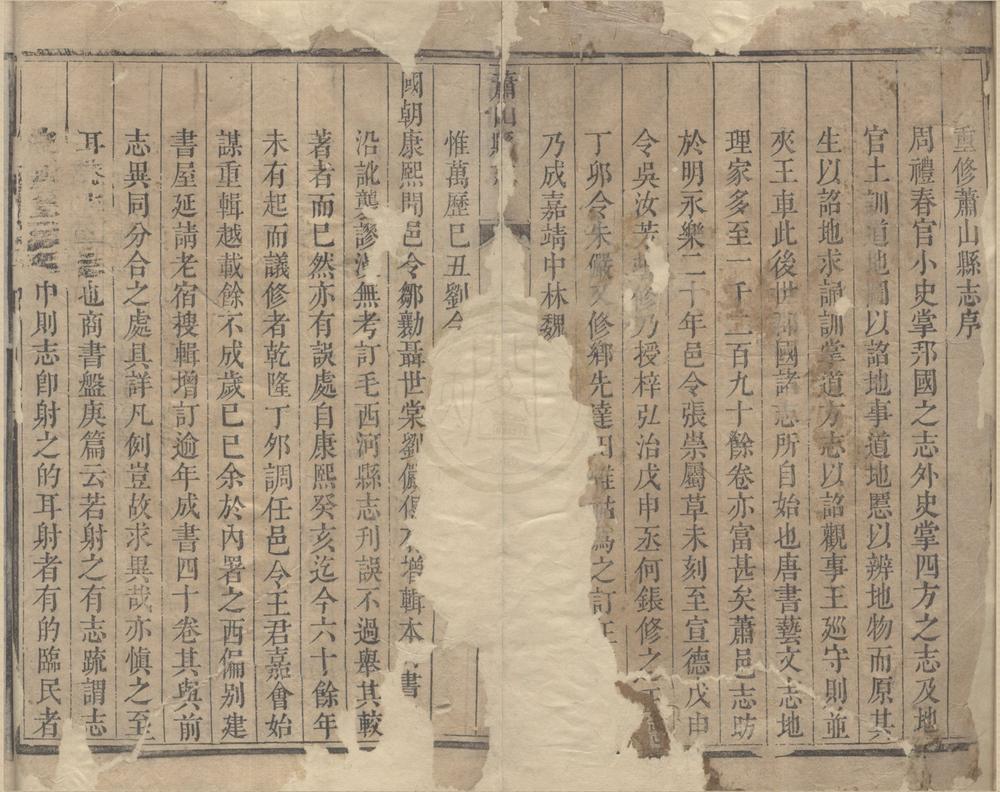 重修蕭山縣志序
周禮春官小史掌邦國之志外史掌四方之志及地
官土訓道地圖以詔地事道地慝以辨地物而原其
生以詔地求誦訓掌道方志以詔觀事王廵守則並
夾王車此後世郡國諸志所自始也唐書藝文志地
理家多至一千二百九十餘卷亦富甚矣蕭邑志昉
於明永樂二十年邑令張崇屬草未刻至宣德戊申
令吳汝芳修乃授梓弘治戊申丞何鋹修之正德
丁卯令朱儼又修鄉先達田惟祜為之訂正
乃成嘉靖中林魏
蕭山縣志
惟萬歷己丑劉會
國朝康熙間邑令鄒勷聶世棠劉儼俱增輯本書
沿訛龔謬漫無考訂毛西河縣志刋誤不過舉其較
著者而已然亦有誤處自康熙癸亥迄今六十餘年
未有起而議修者乾隆丁夘調任邑令王君嘉會始
謀重輯越載餘不成歲己巳余於內署之西偏别建
書屋延請老宿搜輯增訂逾年成書四十卷其與前
志異同分合之處具詳凡例豈故求異哉亦慎之至
耳也商書盤庚篇云若射之有志疏謂志
巾則志卽射之的耳射者有的臨民者